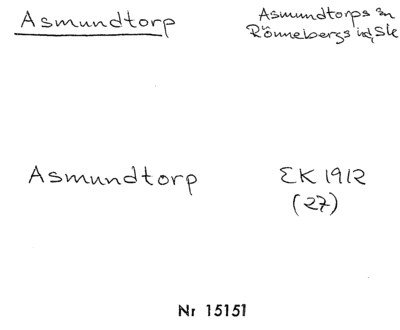 Asmundtorp
Asmundtorps sn
Rönnebergs hd, Skå
Asmundtorp
EK 1912
(27)
Nr 15151